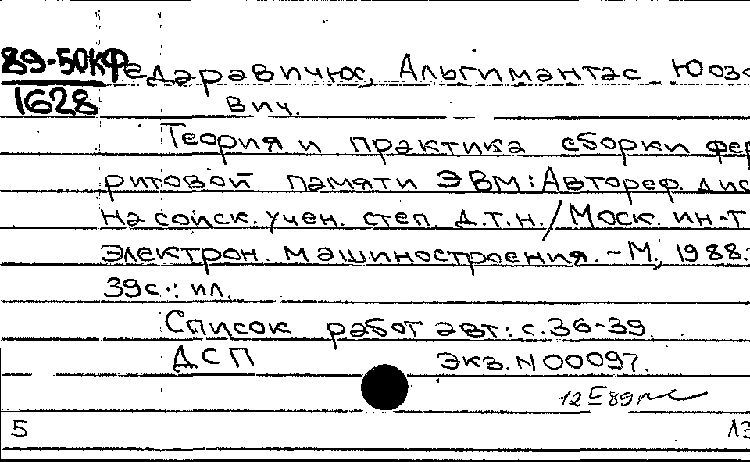 89-50КФ
1628
Федаравичюс, Альгимантас Юозо
вич.
Теория и практика сборки фер
ритовой памяти ЭВМ: Автореф. дис
на соиск. учен. степ. д.т.н./Моск. ин-т
электрон. машиностроения. - М., 1988.
39с.: ил.
Список работ авт: с.36-39.
ДСП Экз. N 00097.
12 Е 89
5